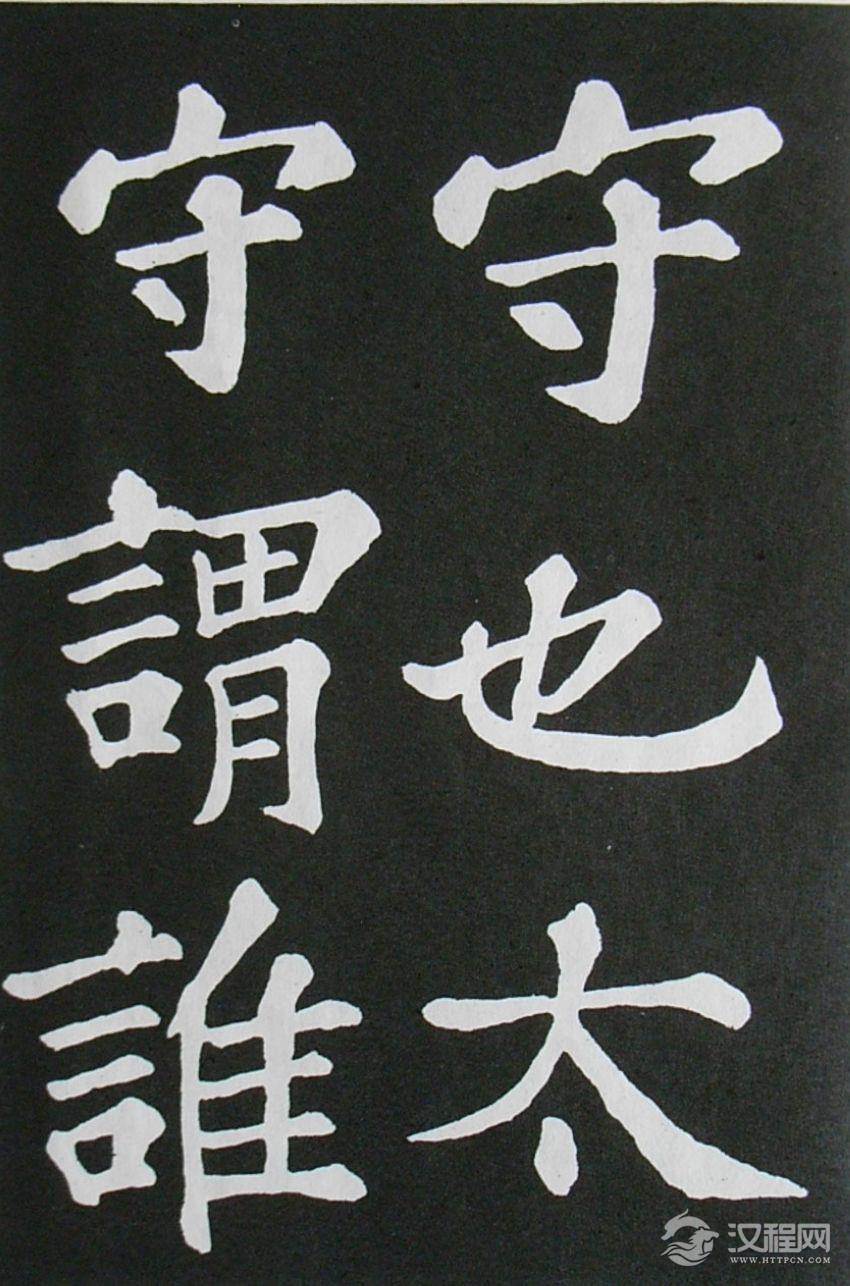 守也太
守謂誰
汉程网
WWW.HTTPCN.COM